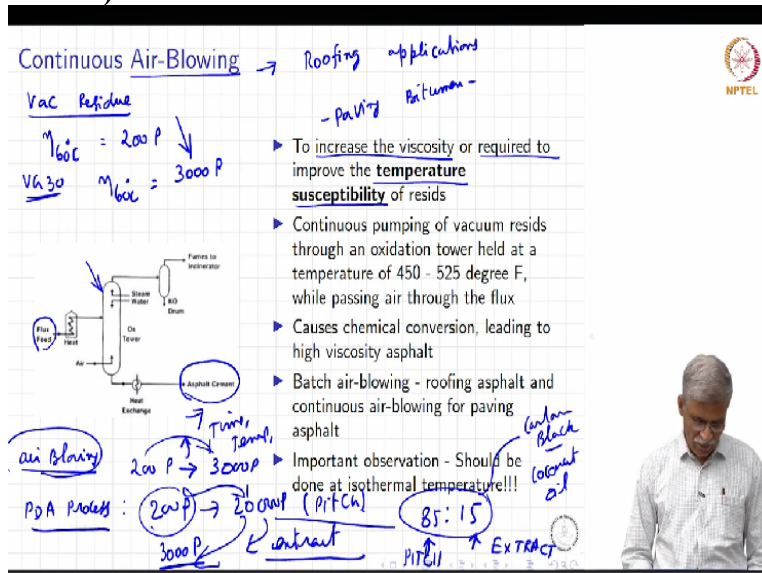 Continuous Air-Blowing → Roofing applications
- Paving Bitumen -
NPTEL
Vac Residue
η60°C = 200 P
VG30 η60°C = 3000 P
▶ To increase the viscosity or required to
improve the temperature
susceptibility of resids
▶ Continuous pumping of vacuum resids
through an oxidation tower held at a
temperature of 450 - 525 degree F,
while passing air through the flux
▶ Causes chemical conversion, leading to
high viscosity asphalt
▶ Batch air-blowing - roofing asphalt and
continuous air-blowing for paving
asphalt
▶ Important observation - Should be
done at isothermal temperature!!!
Fumes to
Incinerator
Steam
Water
KO
Drum
Flux
Feed
Heat
Ox
Tower
Air
Asphalt Cement
Heat
Exchange
→ Time, Temp,
air Blowing 200 P → 3000 P
PDA Process : 200 P → 20000P (Pitch)
3000 P ← extract
Carbon
Black
Coconut
oil
85:15
PITCH
EXTRACT